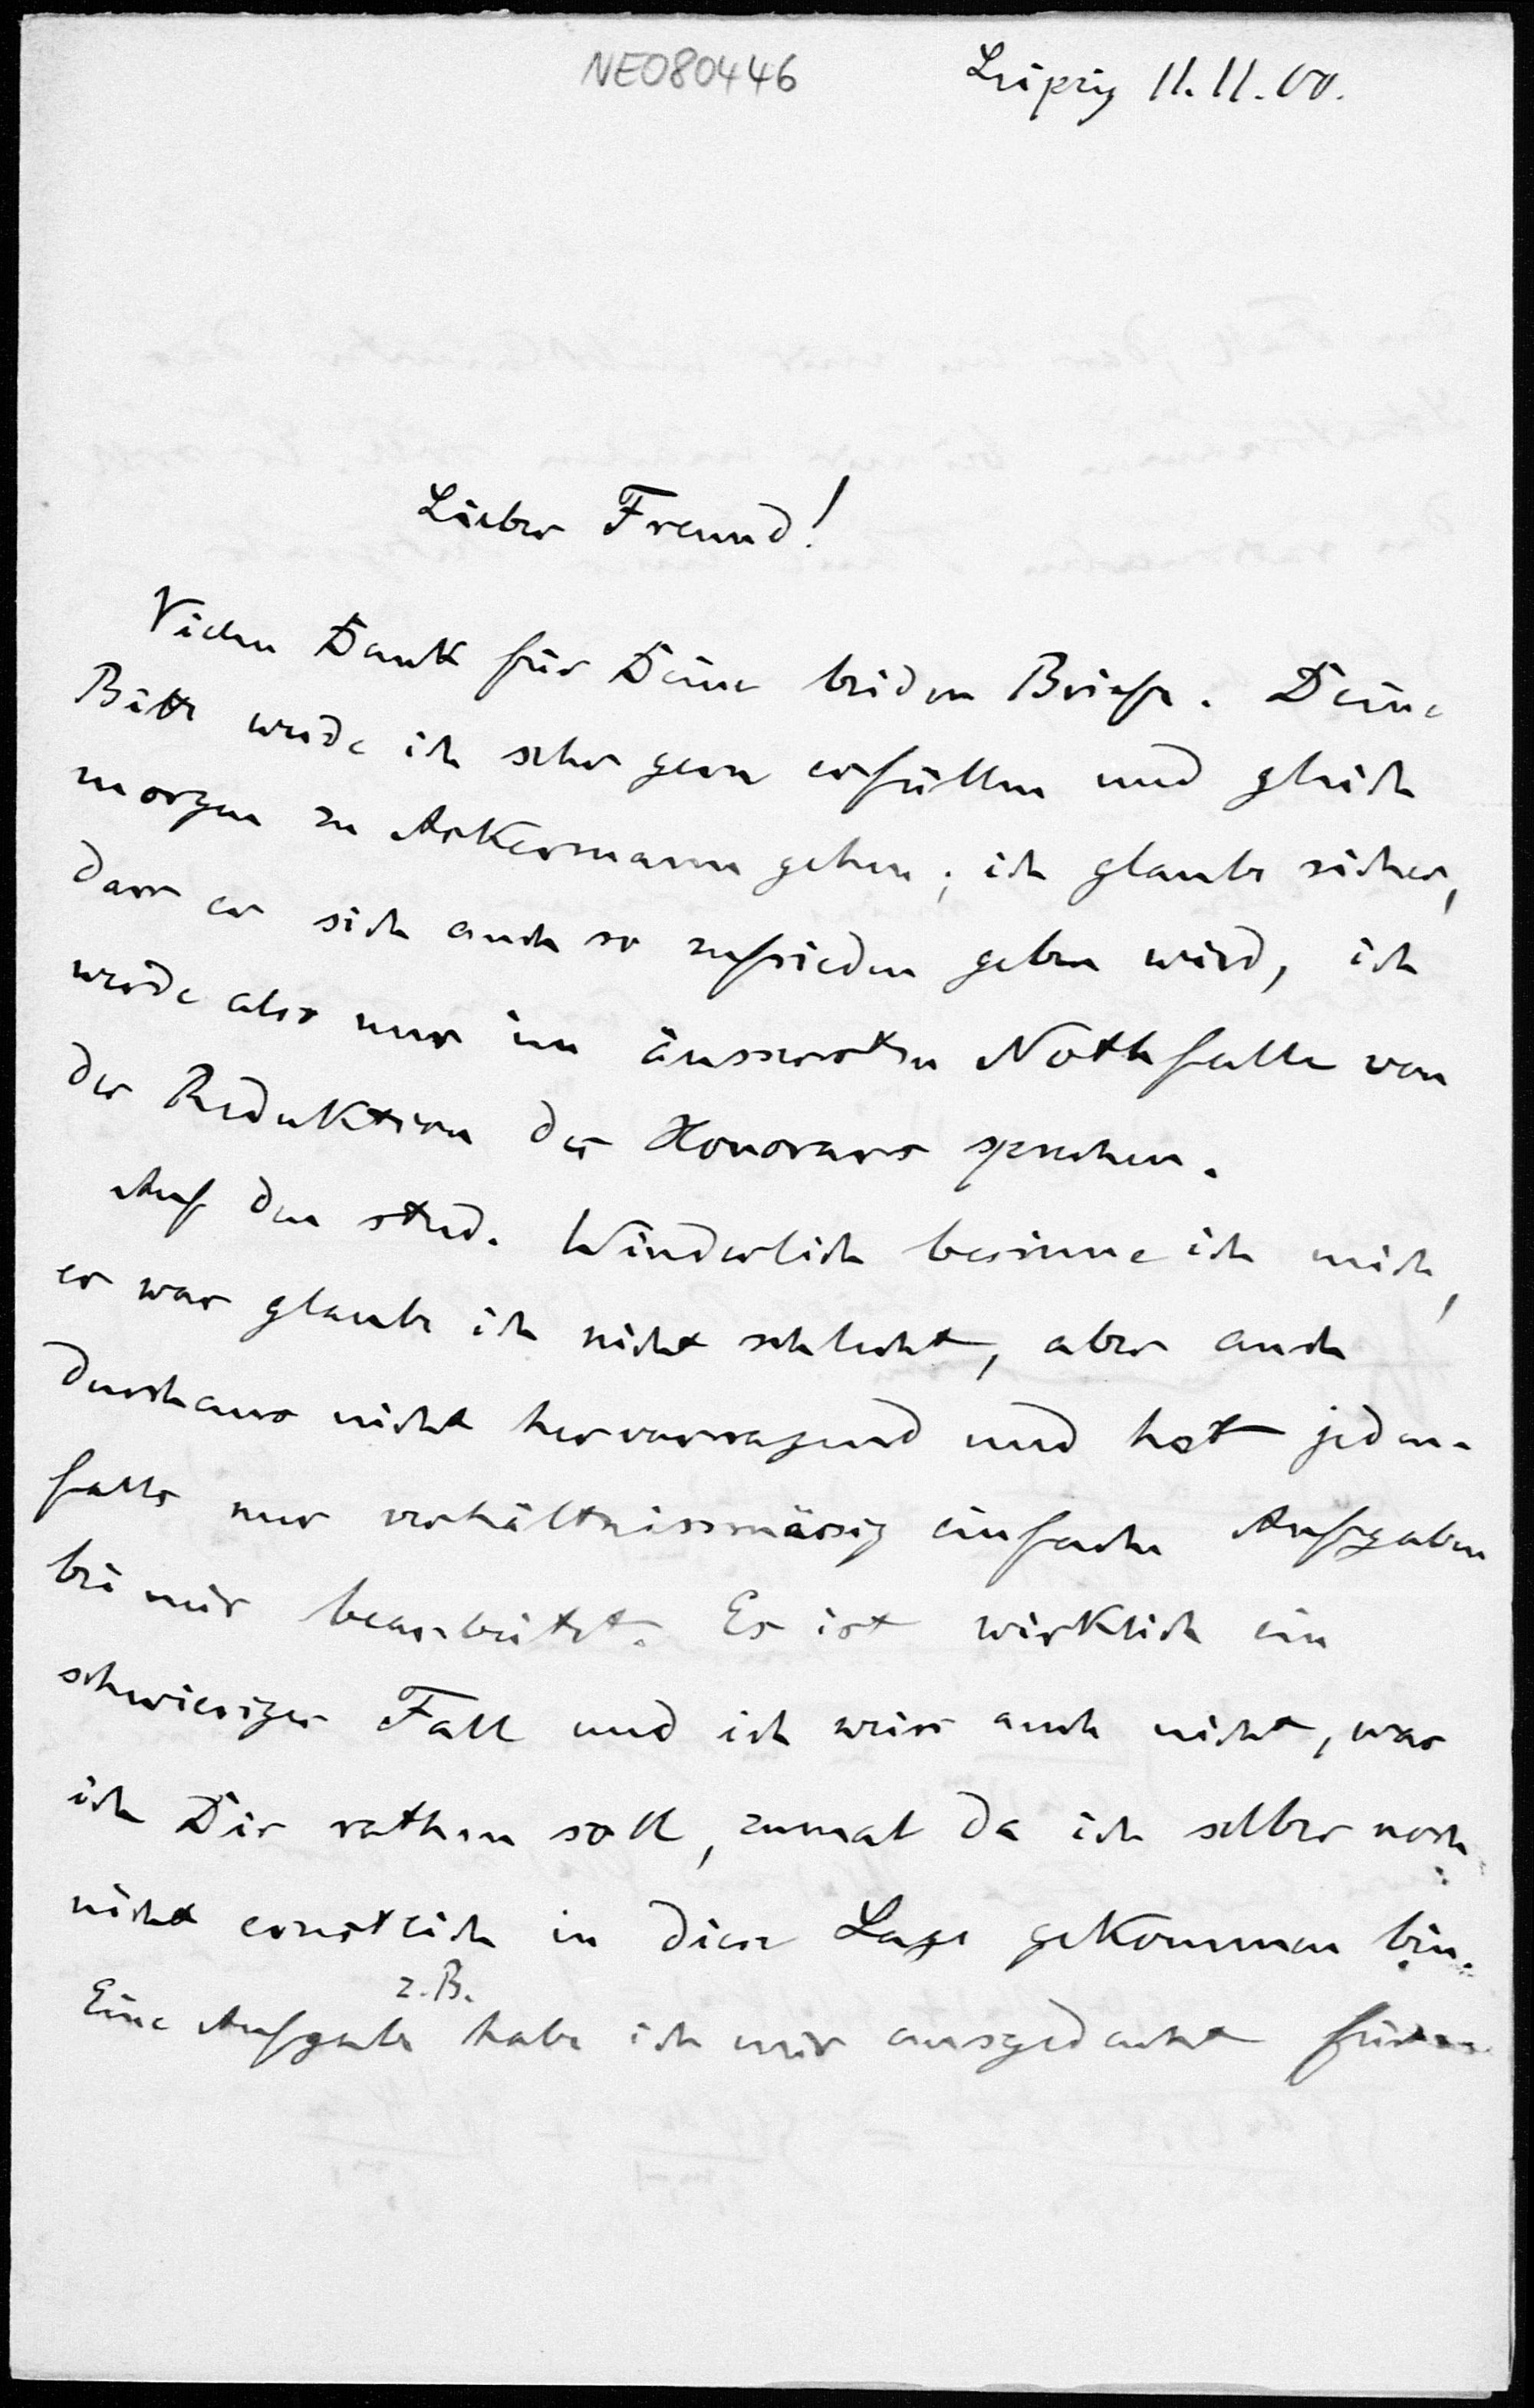 NE080446
Leipzig 11.11.00.
Lieber Freund!
Vielen Dank für Deine beiden Briefe. Deine
Bitte werde ich sehr gern erfüllen und gleich
morgen zu Ackermann gehen; ich glaube sicher,
dass er sich auch so zufrieden geben wird, ich
werde also nur im äussersten Nothfalle von
der Reduktion des Honorars sprechen.
Auf den stud. Winderlich besinne ich mich,
er war glaube ich nicht schlecht, aber auch
durchaus nicht hervorragend und hat jeden-
falls nur verhältnissmässig einfache Aufgaben
bei mir bearbeitet. Es ist wirklich ein
schwieriger Fall und ich weiss auch nicht, was
ich Dir rathen soll, zumal da ich selber noch
nicht ernstlich in diese Lage gekommen bin.
z.B.
Eine Aufgabe habe ich mir ausgedacht für